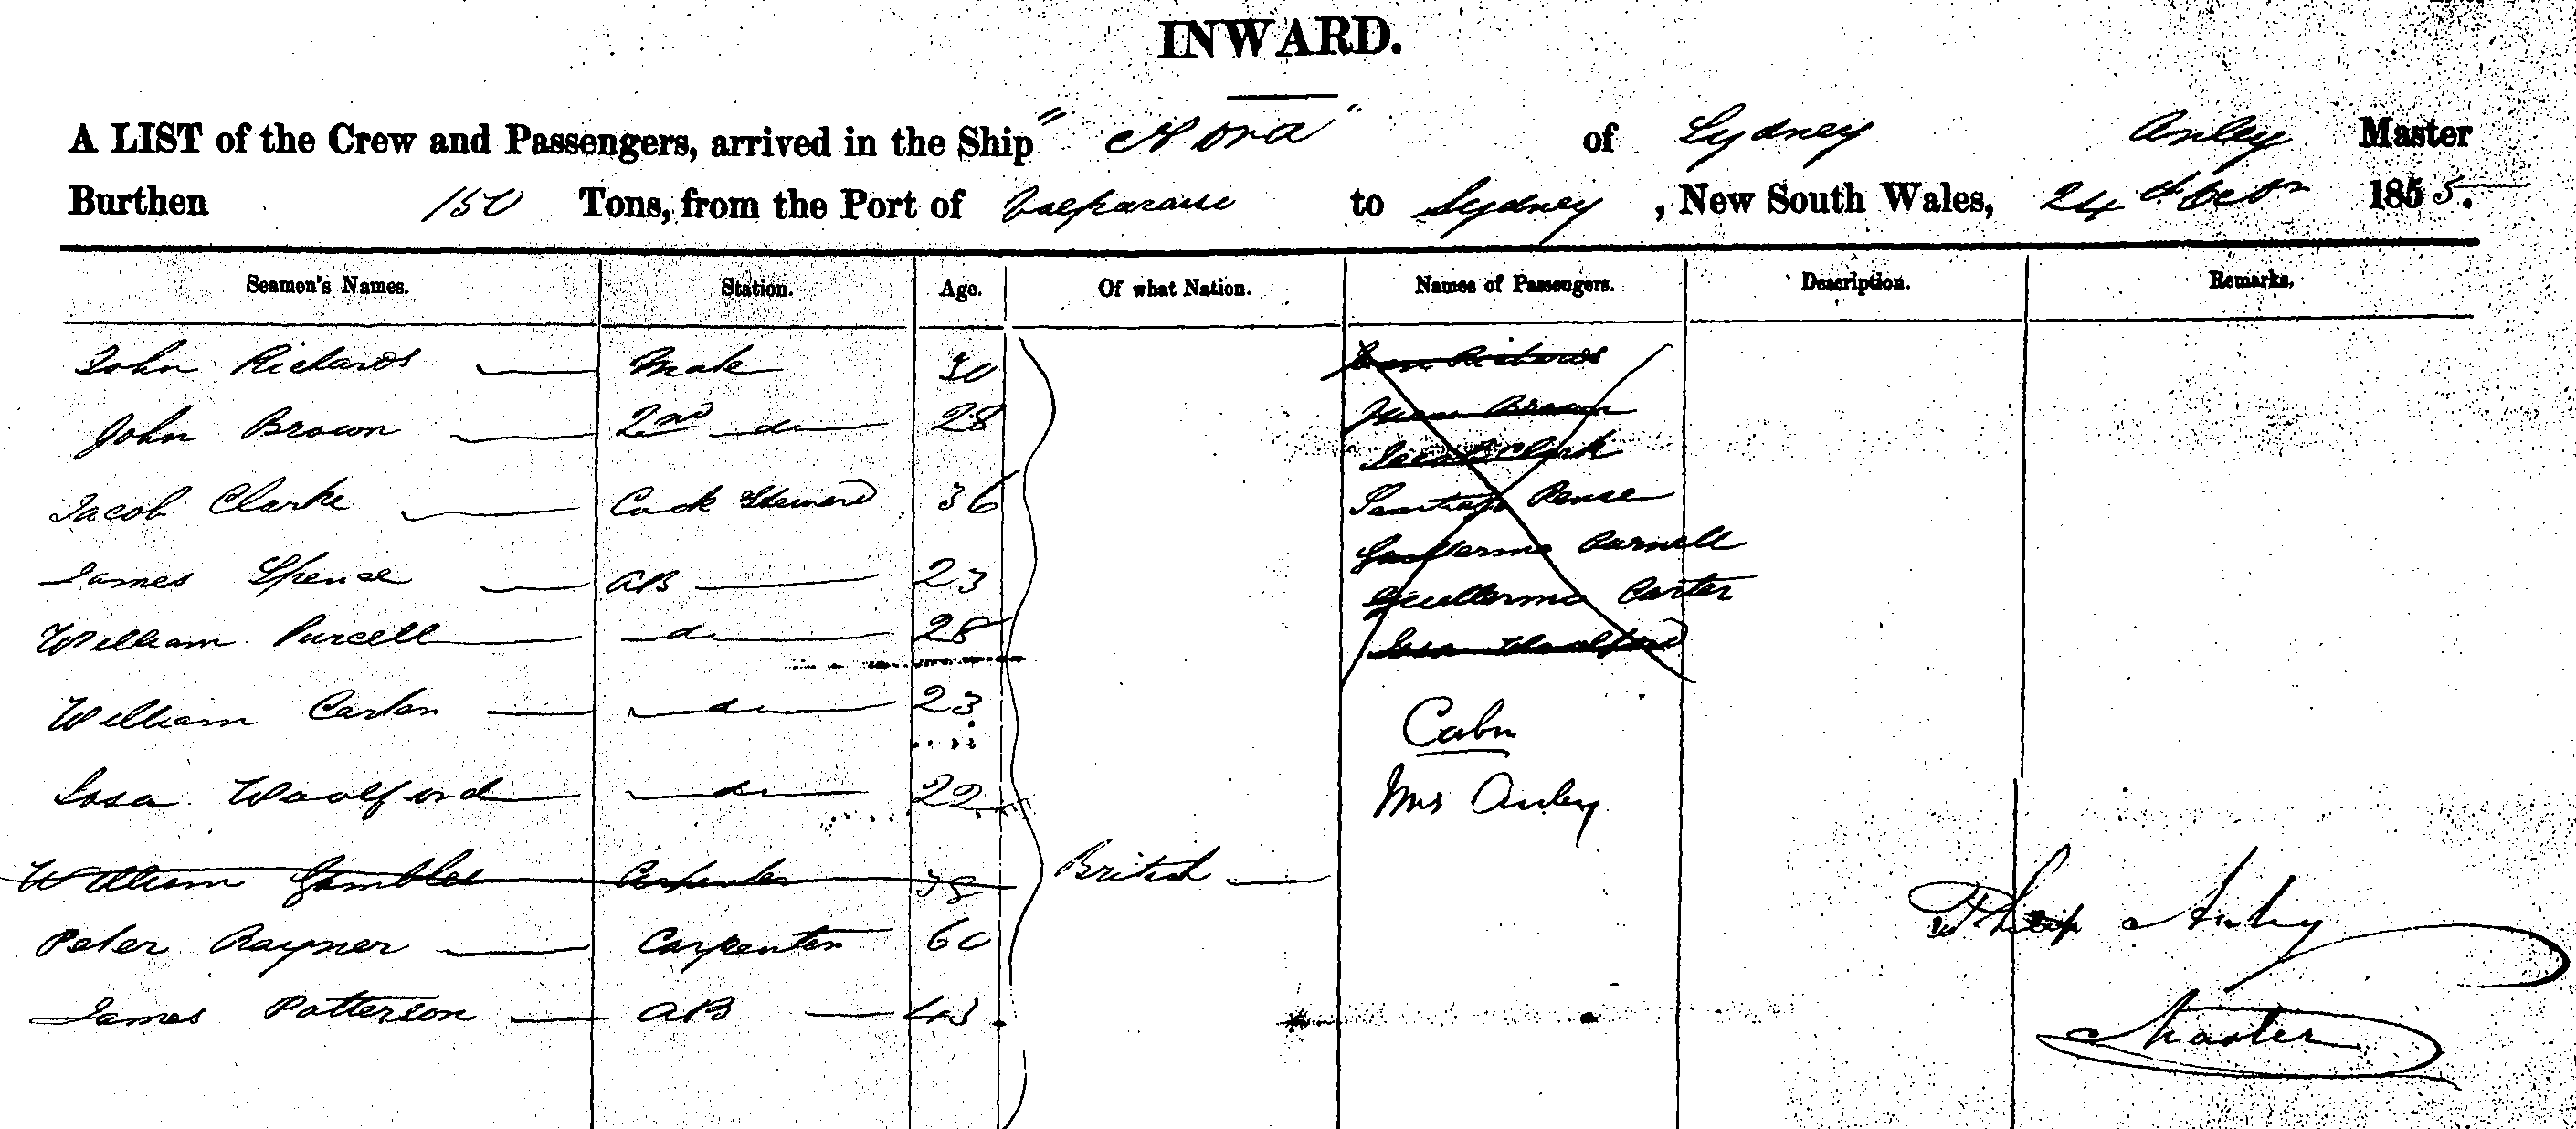 INWARD.
A LIST of the Crew and Passengers, arrived in the Ship "Nora" of Sydney Anley Master
Burthen 150 Tons, from the Port of Valparaiso to Sydney, New South Wales, 24th 1855.
Seamen's Names. Station. Age. Of what Nation. Names of Passengers. Description. Remarks.
John Richards Mate 30 Richards
John Brown 2nd do 28 Juan Brown
Jacob Clarke Cook Steward 36 Jacob Clark
James Spence AB 23 Santiago
William Purcell do 28 Guillermo Purnell
William Carter do 23 Guillermo Carter
Iosa Woolford do 22 Iosa Woolford
Cabin
Mrs Anley
William Gambles Carpenter 38 British
Peter Rayner Carpenter 60
James Patterson AB 43
Philip Anley
Master